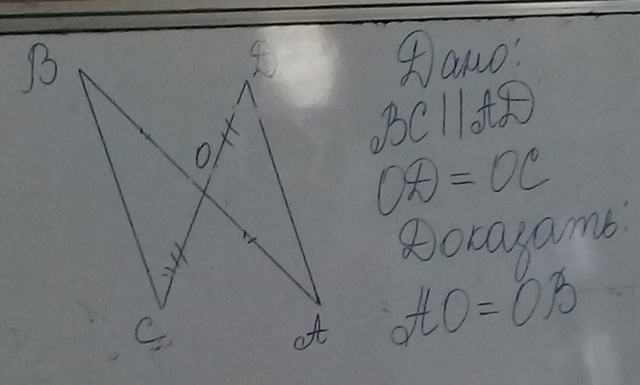 B
D
O
C
A
Дано:
BC || AD
OD = OC
Доказать:
AO = OB